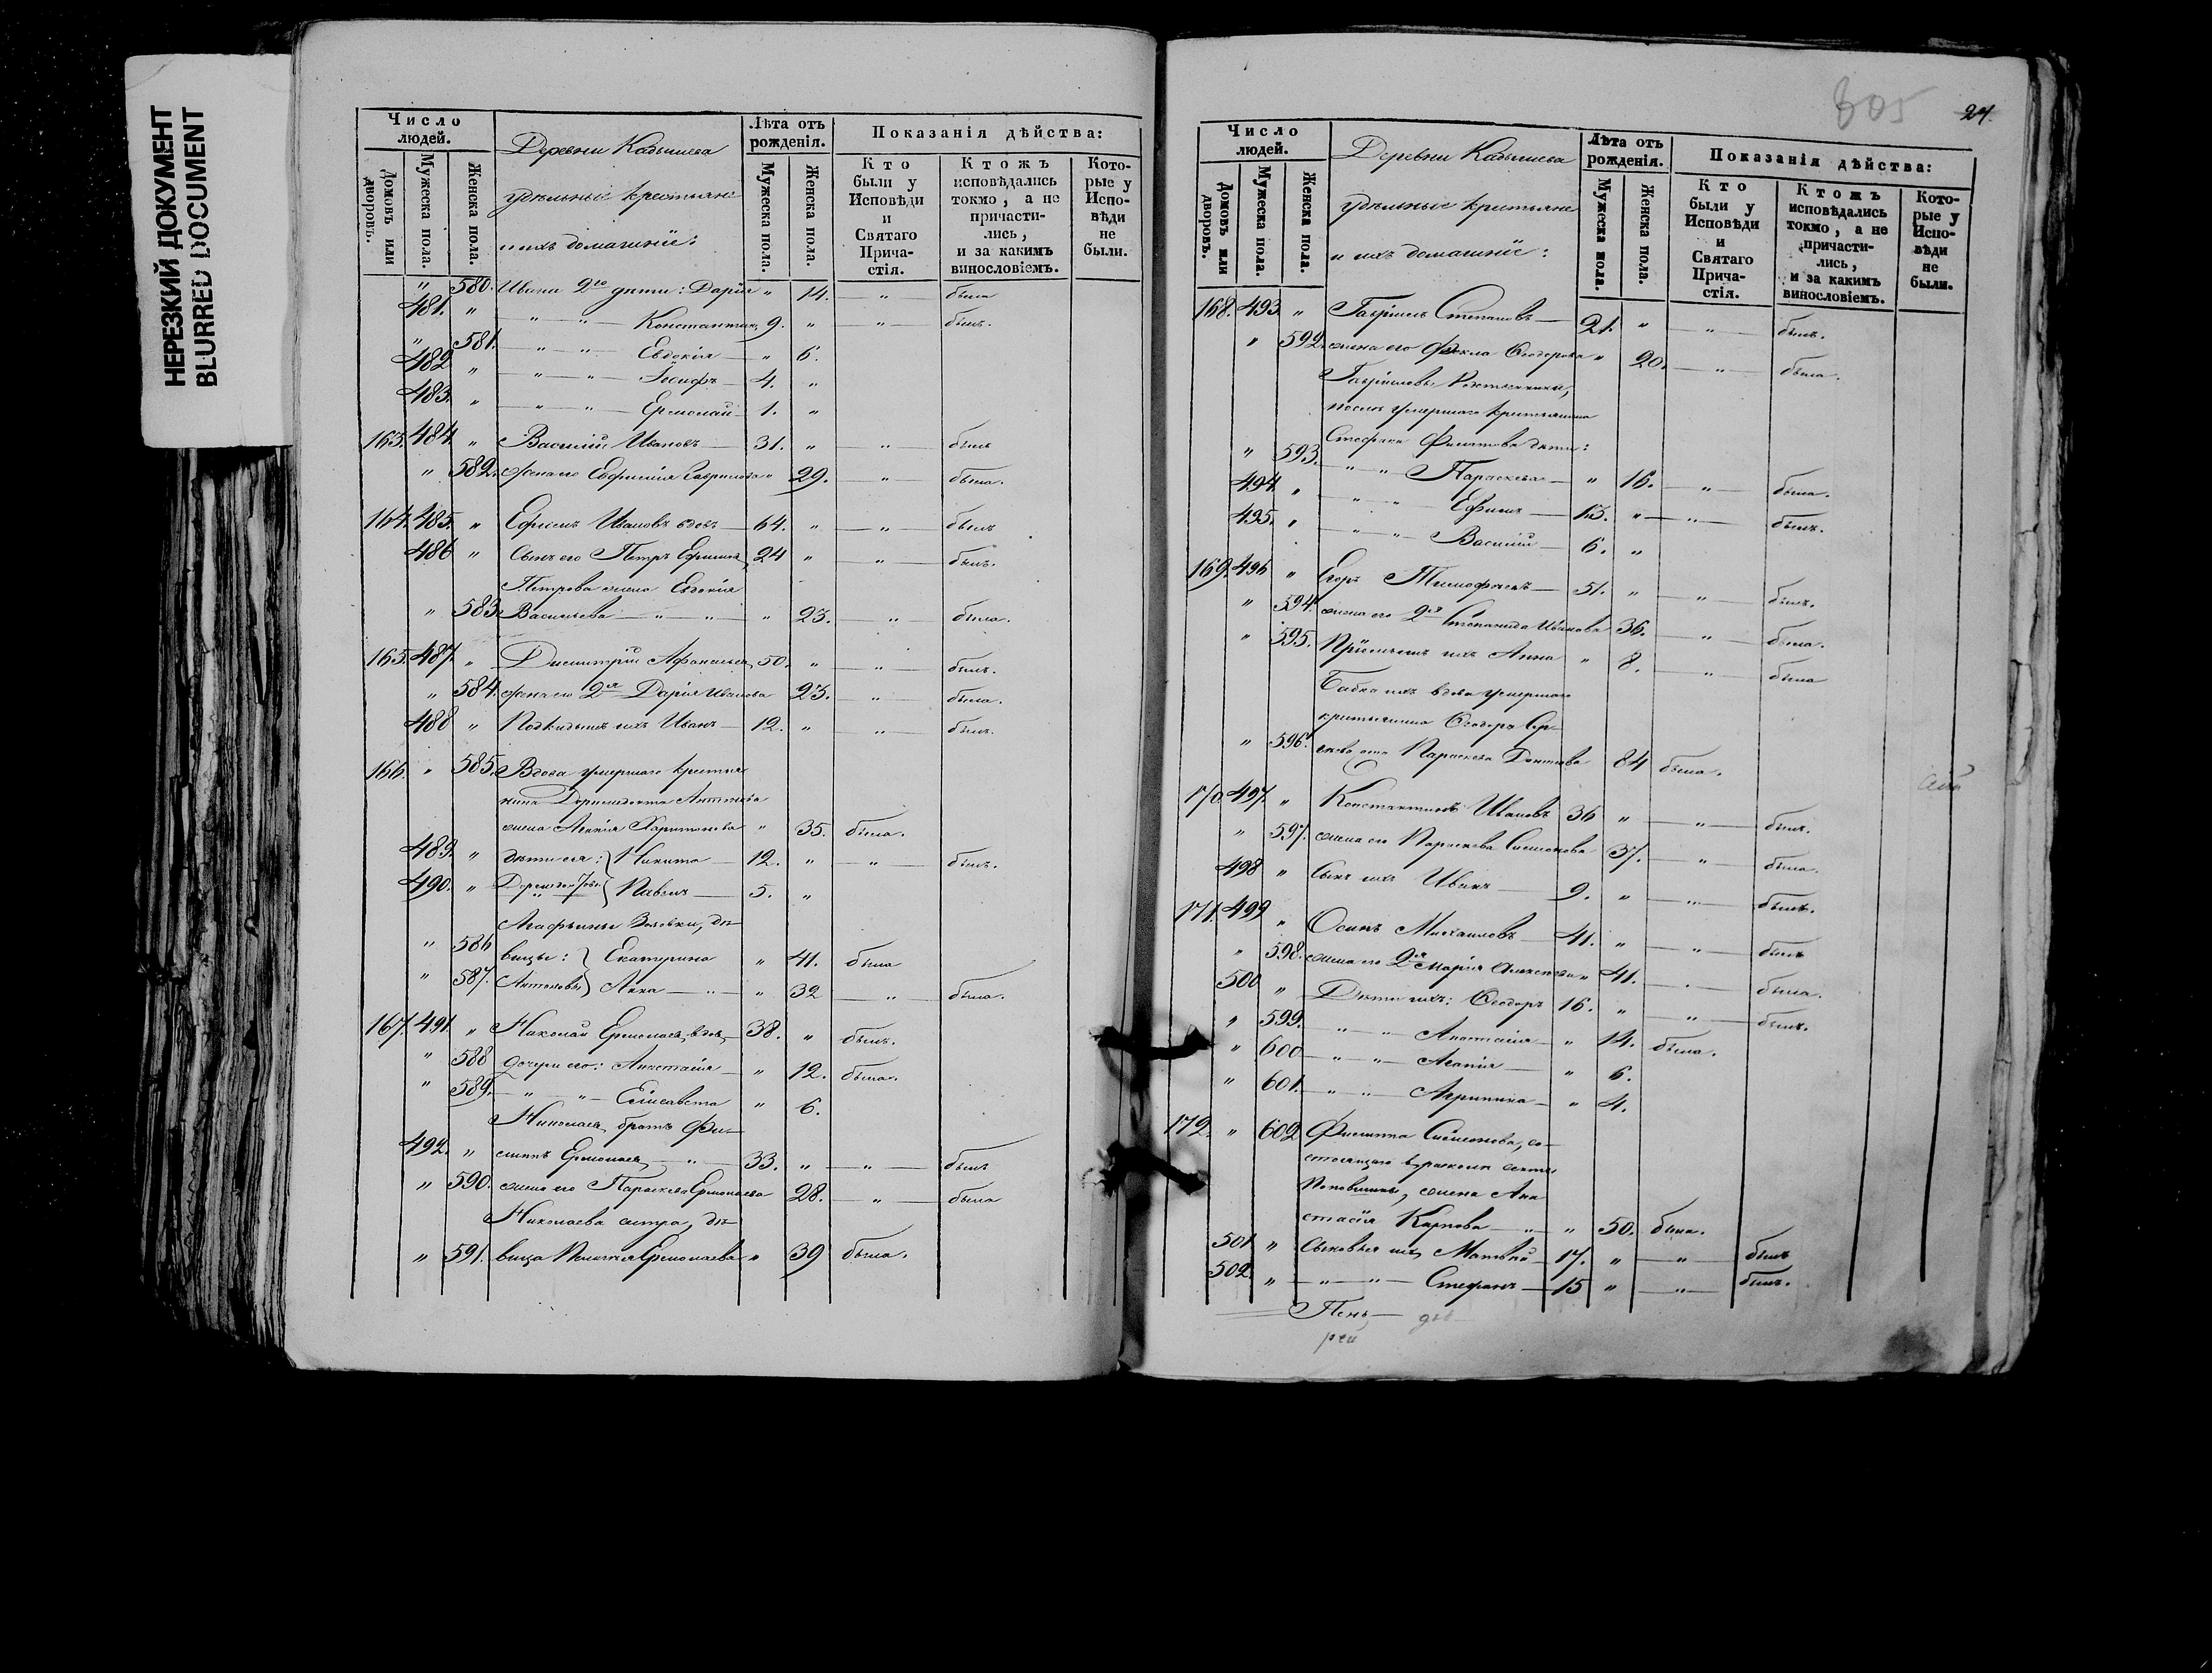 НЕРЕЗКИЙ ДОКУМЕНТ
BLURRED DOCUMENT
Число людей.
Домовъ или дворовъ.
Мужеска пола.
Женска пола.
Деревни Кадышева
удѣльные крестьяне
и ихъ домашніе:
Лѣта отъ рожденія.
Мужеска пола.
Женска пола.
Показанія дѣйства:
Кто были у Исповѣди и Святаго Причастія.
Ктожъ исповѣдались токмо, а не причастились, и за какимъ винословіемъ.
Которые у Исповѣди не были.
" 580. Ивана 2го дѣти: Дарія " 14. — " — была
481. " " — " — Константинъ 9. " — " — былъ.
" 581. " — " — Евдокія — " 6.
482 " " — " — Іосифъ — 4. "
483. " " — " — Ермолай — 1. "
163. 484. " Василій Ивановъ — 31. " — " — былъ
" 582. жена его Евфимія Гаврилова " 29. — " — была.
164. 485. " Ефимъ Ивановъ вдовъ — 64. " — " — былъ
486 " Сынъ его Петръ Ефимовъ 24 " — " — былъ.
Петрова жена Евдокія
" 583. Васильева — " — " — " 23. — " — была.
165. 487. " Димитрій Афанасьевъ 50. " — " — былъ.
" 584. жена его 2я Дарія Иванова 23. — " — была.
488 " Подкидышъ ихъ Иванъ — 12. " — " — былъ.
166. " 585. Вдова умершаго крестья
нина Доримедонта Антонова
жена Агафія Харитонова " 35. была.
489. " дѣти ея: Никита — 12. " — " — былъ.
490. " Павелъ — 5. "
Агафьины Золовки, дѣ-
" 586 вицы: Екатерина " 41. была
" 587. Антоновы Анна — " — " 32 — " — была.
167. 491. " Николай Ермолаевъ вдовъ 38. " былъ.
" 588 дочери его: Анастасія — " 12. была.
" 589. — " — " — Елисавета " 6.
Николаевъ братъ Фи-
492. " липпъ Ермолаевъ — " — 33. " — " — былъ
" 590. жена его Параскева Ермолаева 28. — " — была
Николаева сестра, дѣ-
" 591. вица Пелагея Ермолаева " 39 была.
305
24.
Число людей.
Домовъ или дворовъ.
Мужеска пола.
Женска пола.
Деревни Кадышева
удѣльные крестьяне
и ихъ домашніе:
Лѣта отъ рожденія.
Мужеска пола.
Женска пола.
Показанія дѣйства:
Кто были у Исповѣди и Святаго Причастія.
Ктожъ исповѣдались токмо, а не причастились, и за какимъ винословіемъ.
Которые у Исповѣди не были.
168. 493. " Гавріилъ Степановъ — 21. " — " — былъ.
" 592. жена его Фекла Ѳеодорова " 20. — " — была.
Гавріиловы
послѣ умершаго крестьянина
Стефана Филатова дѣти:
" 593. " — " — Параскева — " 16. — " — была.
494. " " — " — Ефимъ — 13. " — " — былъ.
495. " " — " — Василій — 6. "
169. 496 " Егоръ Тимофеевъ — 51. " — " — былъ.
" 594. жена его 2я Степанида Иванова 36. — " — была.
" 595. Пріемышъ ихъ Анна " 8. — " — была
Бабка ихъ вдова умершаго
крестьянина Ѳеодора Сер-
" 596. Параскева 84 была.
170. 497. " Константинъ Ивановъ 36 " — " — былъ.
" 597. жена его Параскева Симеонова 37. — " — была.
498 " Сынъ ихъ Иванъ — 9. " — " — былъ.
171. 499 " Осипъ Михаиловъ — 41. " — " — былъ
" 598. жена его 2я Марія Алексеева " 41. — " — была.
500 " Дѣти ихъ: Ѳеодоръ 16. " — " — былъ.
" 599. " — " — Анастасія — " 14. была.
" 600 — " — " — Агафія — " 6.
" 601. — " — " — Агрипина — " 4.
172. " 602 Филиппа Симеонова, со-
стоящаго въ расколѣ секты
Поповщины, жена Ана
стасія Карпова — " — " 50. была.
501. " Сыновья ихъ Матвѣй — 17. " — " — былъ
502. " — " — " — Стефанъ — 15 " — " — былъ.